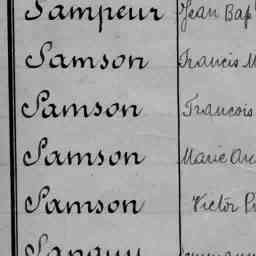 Sampeur Jean Bap
Samson Francis M
Samson Francois
Samson Marie
Samson Victor